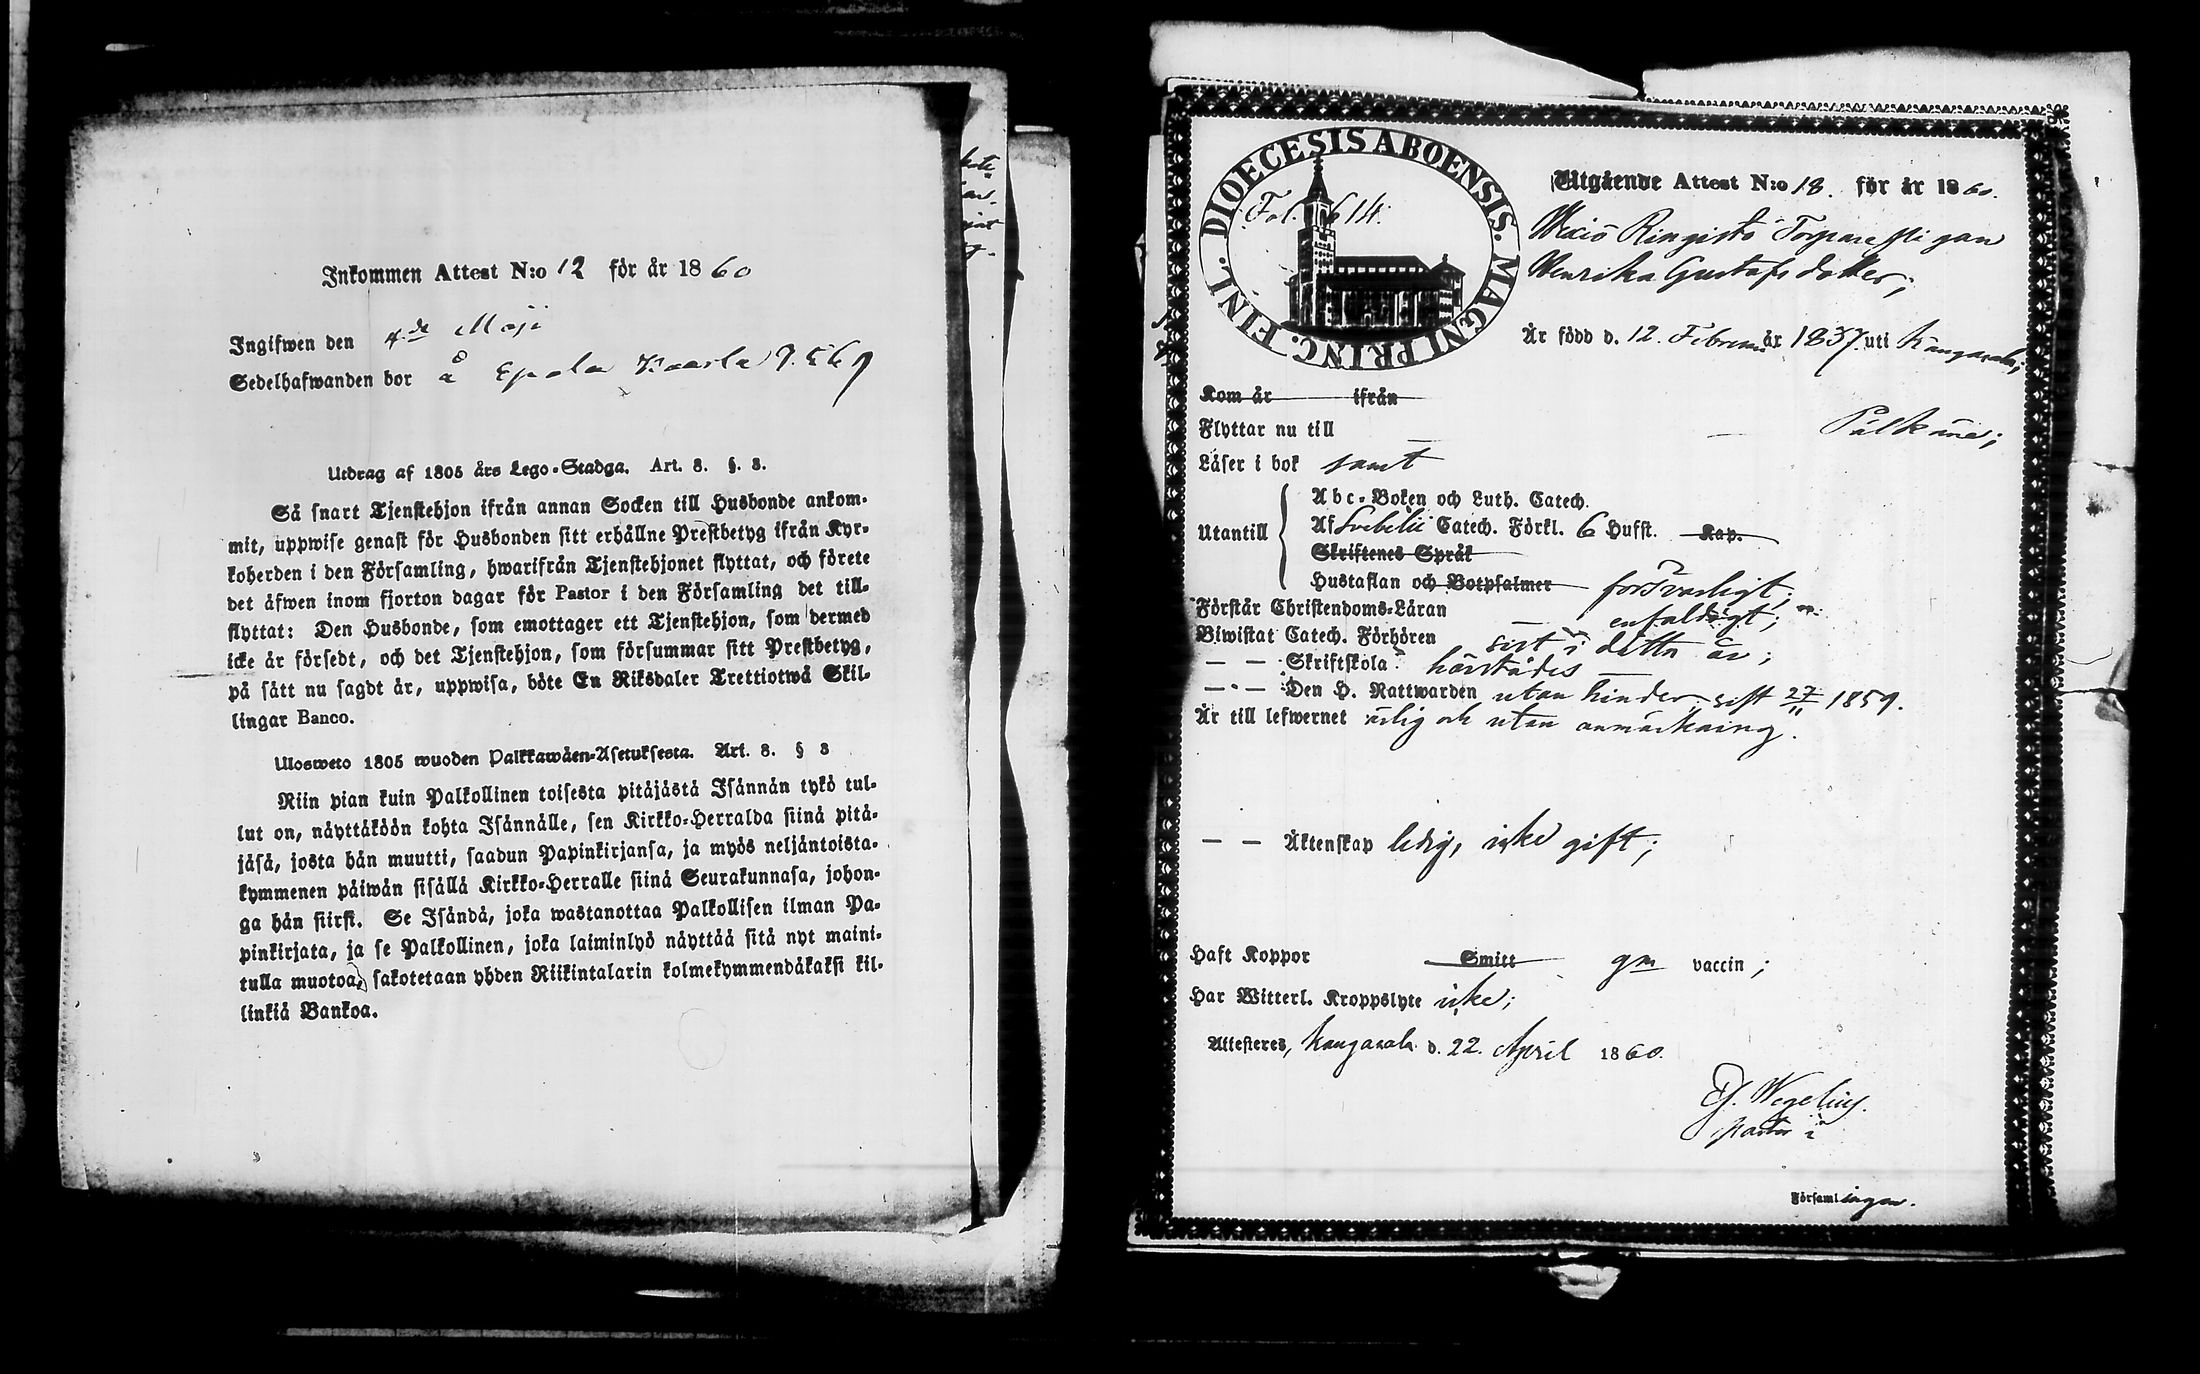 Inkommen Attest N:o 12 för år 1860
Ingifwen den 4de Maji
Sedelhafwanden bor å Epola Kaarla P. 569
Utdrag af 1805 års Lego-Stadga. Art. 8. §. 3.
Så snart Tjenstehjon ifrån annan Socken till Husbonde ankom-
mit, uppwise genast för Husbonden sitt erhållne Prestbetyg ifrån Kyr-
koherden i den Församling, hwarifrån Tjenstehjonet flyttat, och förete
det äfwen inom fjorton dagar för Pastor i den Församling det till-
flyttat: Den Husbonde, som emottager ett Tjenstehjon, som dermed
icke är försedt, och det Tjenstehjon, som försummar sitt Prestbetyg,
på sätt nu sagdt är, uppwisa, böte En Riksdaler Trettiotwå Skil-
lingar Banco.
Ulosweto 1805 wuoden Palkkawäen-Asetuksesta. Art. 8. § 3
Niin pian kuin Palkollinen toisesta pitäjästä Isännän tykö tul-
lut on, näyttäköön kohta Isännälle, sen Kirkko-Herralda siinä pitä-
jäsä, josta hän muutti, saadun Papinkirjansa, ja myös neljäntoista-
kymmenen päiwän sisällä Kirkko-Herralle siinä Seurakunnasa, johon-
ga hän siirsi. Se Isändä, joka wastanottaa Palkollisen ilman Pa-
pinkirjata, ja se Palkollinen, joka laiminlyö näyttää sitä nyt maini-
tulla muotoa, sakotetaan yhden Riikintalarin kolmekymmendäkaksi kil-
linkiä Bankoa.
DIOECESIS ABOENSIS. MAGNI PRINC. FINL.
Fol. 614.
Utgående Attest N:o 18. för år 1860.
Ringisto Torpare Pigan
Henrika Gustafsdotter;
Är född d. 12. Februarii år 1837. uti Kangasala;
Kom år ifrån
Flyttar nu till Pälkäne;
Läser i bok samt
Utantill
Abc-Boken och Luth. Catech.
Af Svebelii Catech. Förkl. 6 Hufst. Kap.
Skriftenes Språk
Hustaflan och Botpsalmer försvarligt;
Förstår Christendoms-Läran enfaldigt;
Biwistat Catech. Förhören sist i detta år;
— — Skriftskola härstädes
— — Den H. Nattwarden utan hinder, sist 27/11 1859.
Är till lefwernet ärlig och utan anmärkning.
— — Äktenskap ledig, icke gift;
Haft Koppor Smitt gm vaccin;
Har Witterl. Kroppslyte icke;
Attesteres, Kangasala d. 22. April 1860.
Wegelius.
Pastor i
Församlingen.